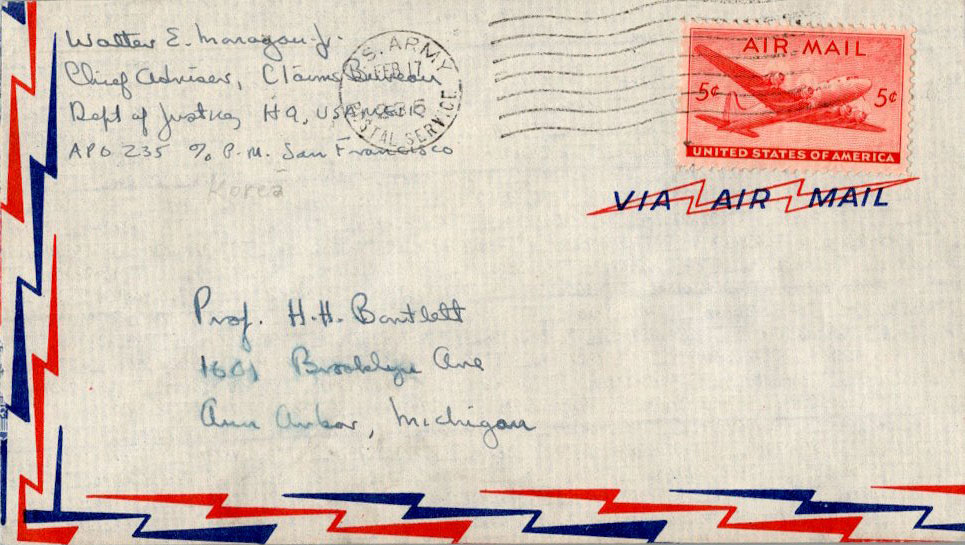 Walter E. Maragou Jr.
Chief Adviser, Claims Bureau
Dept of Justice, HQ, USAMGIK
APO 235 c/o P.M. San Francisco
Korea
U.S. ARMY
FEB 17
POSTAL SERVICE
AIR MAIL
5¢ 5¢
UNITED STATES OF AMERICA
VIA AIR MAIL
Prof. H.H. Bartlett
1601 Brooklyn Ave
Ann Arbor, Michigan